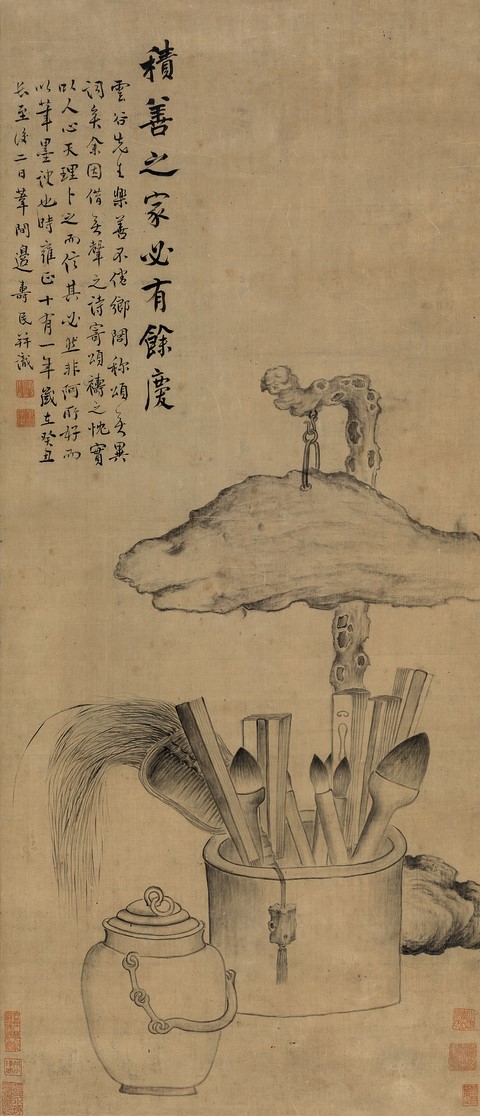 積善之家必有餘慶
雲谷先生樂善不倦鄉閭稱頌無異
詞矣余因借無聲之詩寄頌禱之忱實
以人心天理卜之而信其必然非阿所好而
以筆墨諛也時雍正十有一年歲在癸丑
長至後二日葦間邊壽民并識